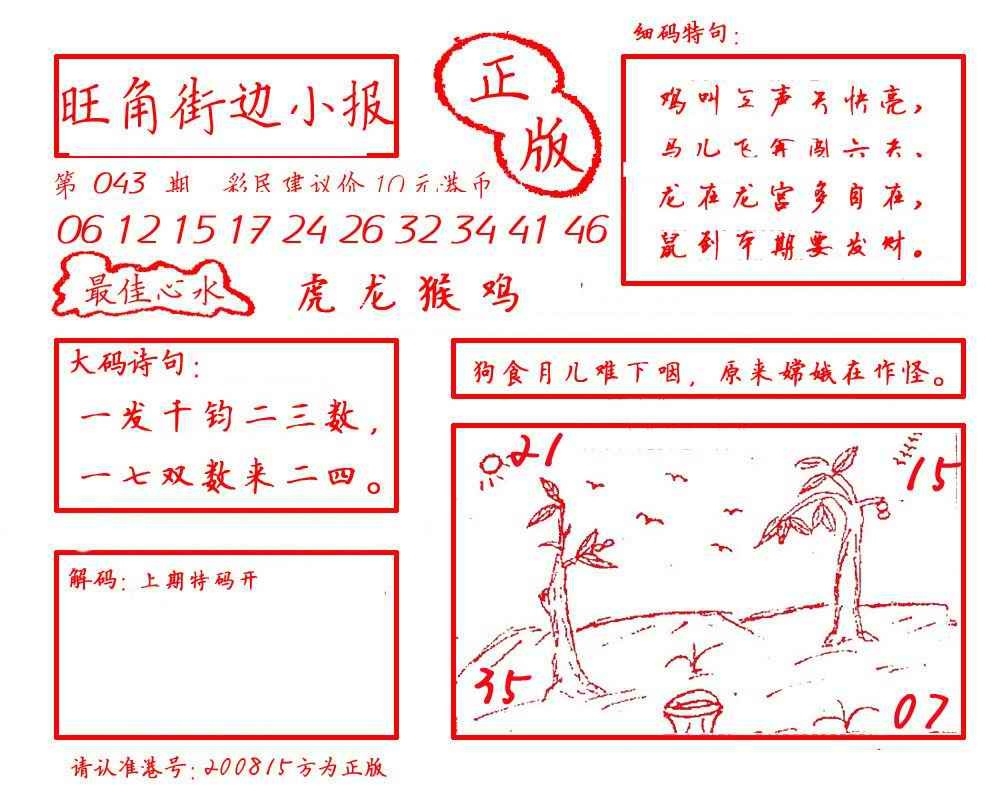 细码特句：
旺角街边小报
正版
鸡叫三声天快亮，
马儿飞奔闯六关、
龙在龙宫多自在，
鼠到本期要发财。
第 043 期 彩民建议价10元港币
06 12 15 17 24 26 32 34 41 46
最佳心水
虎龙猴鸡
大码诗句：
一发千钧二三数，
一七双数来二四。
狗食月儿难下咽，原来嫦娥在作怪。
21
15
35
07
解码：上期特码开
请认准港号：200815方为正版